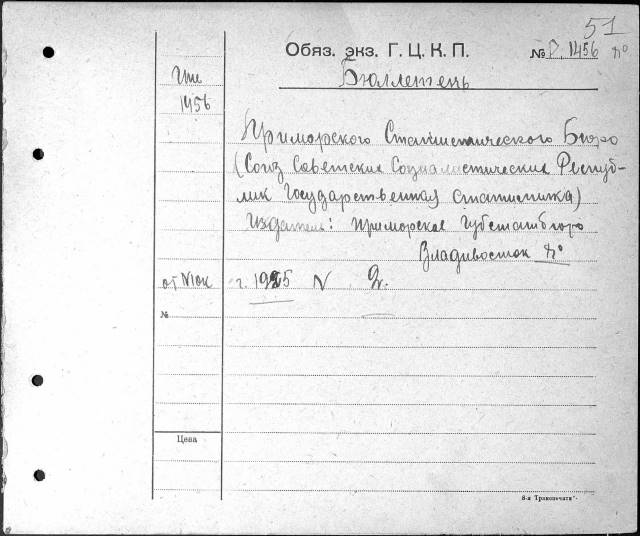 51
Обяз. экз. Г. Ц. К. П.
№ Р. 1456 п°
Бюллетень
1456
Приморского Статистического Бюро
(Союз Советских Социалистических Респуб-
лик Государственная статистика)
Издатель: Приморское Губстатбюро
Владивосток п°
от
г. 1925 N 2.
№
Цена
8-я Транспечати".